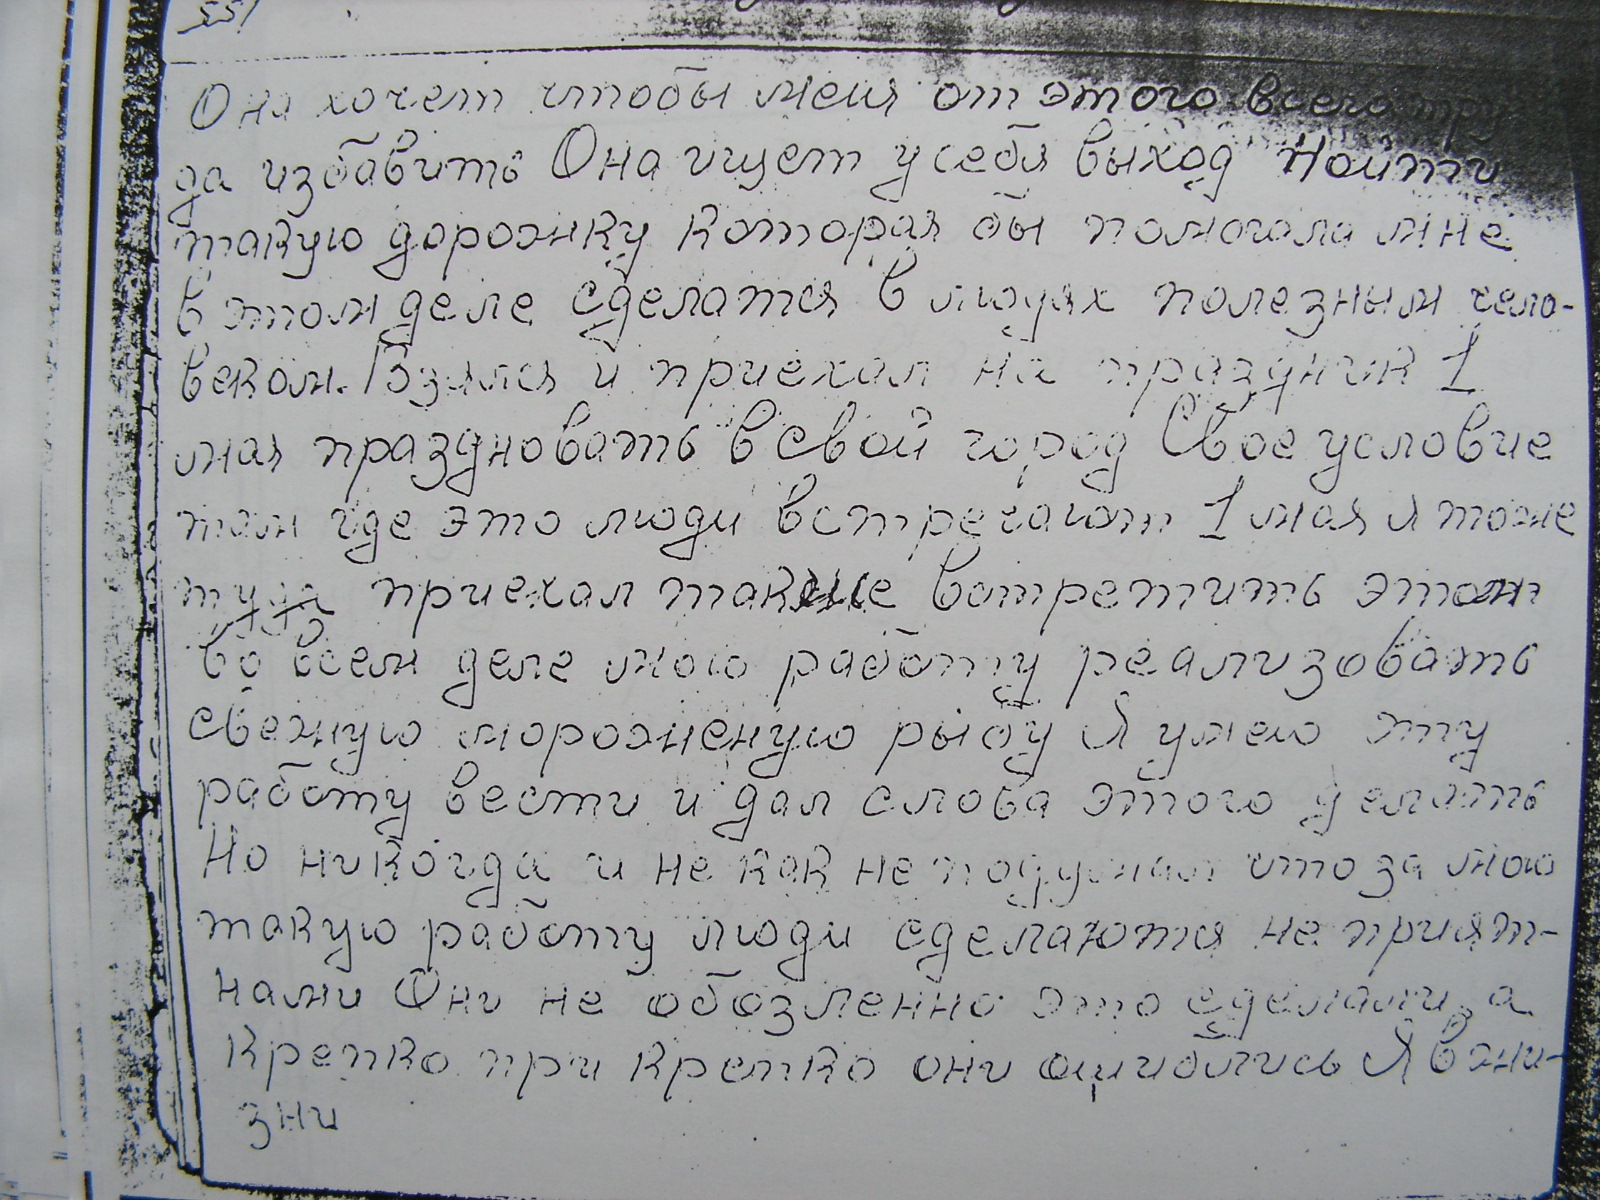 551
Она хочет чтобы меня от этого всего тру
да избавить Она ищет у себя выход Найти
такую дорожку которая бы помогала мне
в этом деле сделатся в людях полезным чело-
веком. Взялся и приехал на праздник 1
мая праздновать в свой город Свое условие
там где это люди встречают 1 мая я тоже
туда приехал также встретить этом
во всем деле мою работу реализовать
свежую мороженую рыбу Я умею эту
работу вести и дал слова этого делать
Но никогда и не как не подумал что за мою
такую работу люди сделаются не прият-
нами Они не обозленно это сделали, а
крепко при крепко они ошиблись Я в жи-
зни